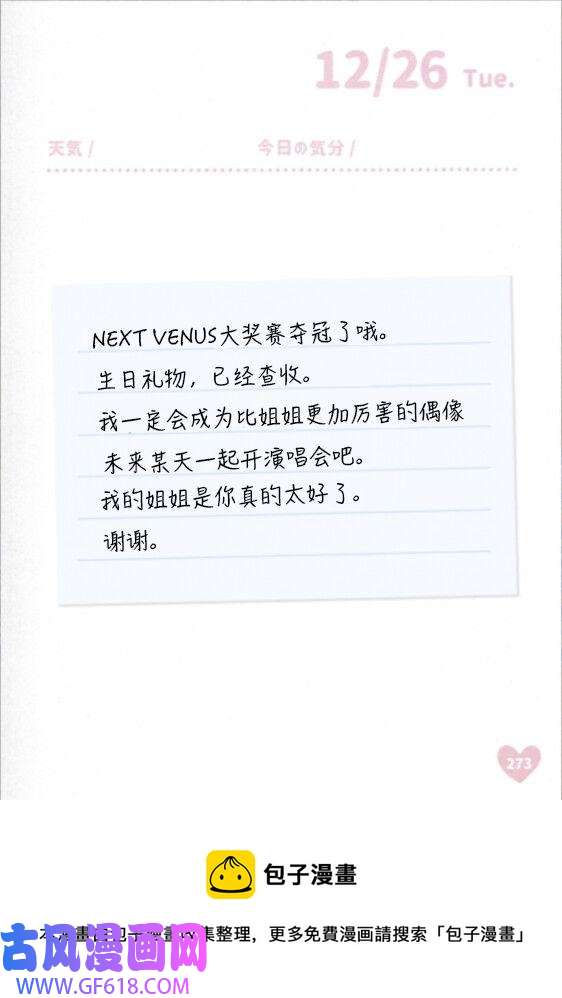 12/26 Tue.
天気 /
今日の気分 /
NEXT VENUS大奖赛夺冠了哦。
生日礼物，已经查收。
我一定会成为比姐姐更加厉害的偶像
未来某天一起开演唱会吧。
我的姐姐是你真的太好了。
谢谢。
273
包子漫畫
集整理，更多免費漫画請搜索「包子漫畫」
古风漫画网
WWW.GF618.COM